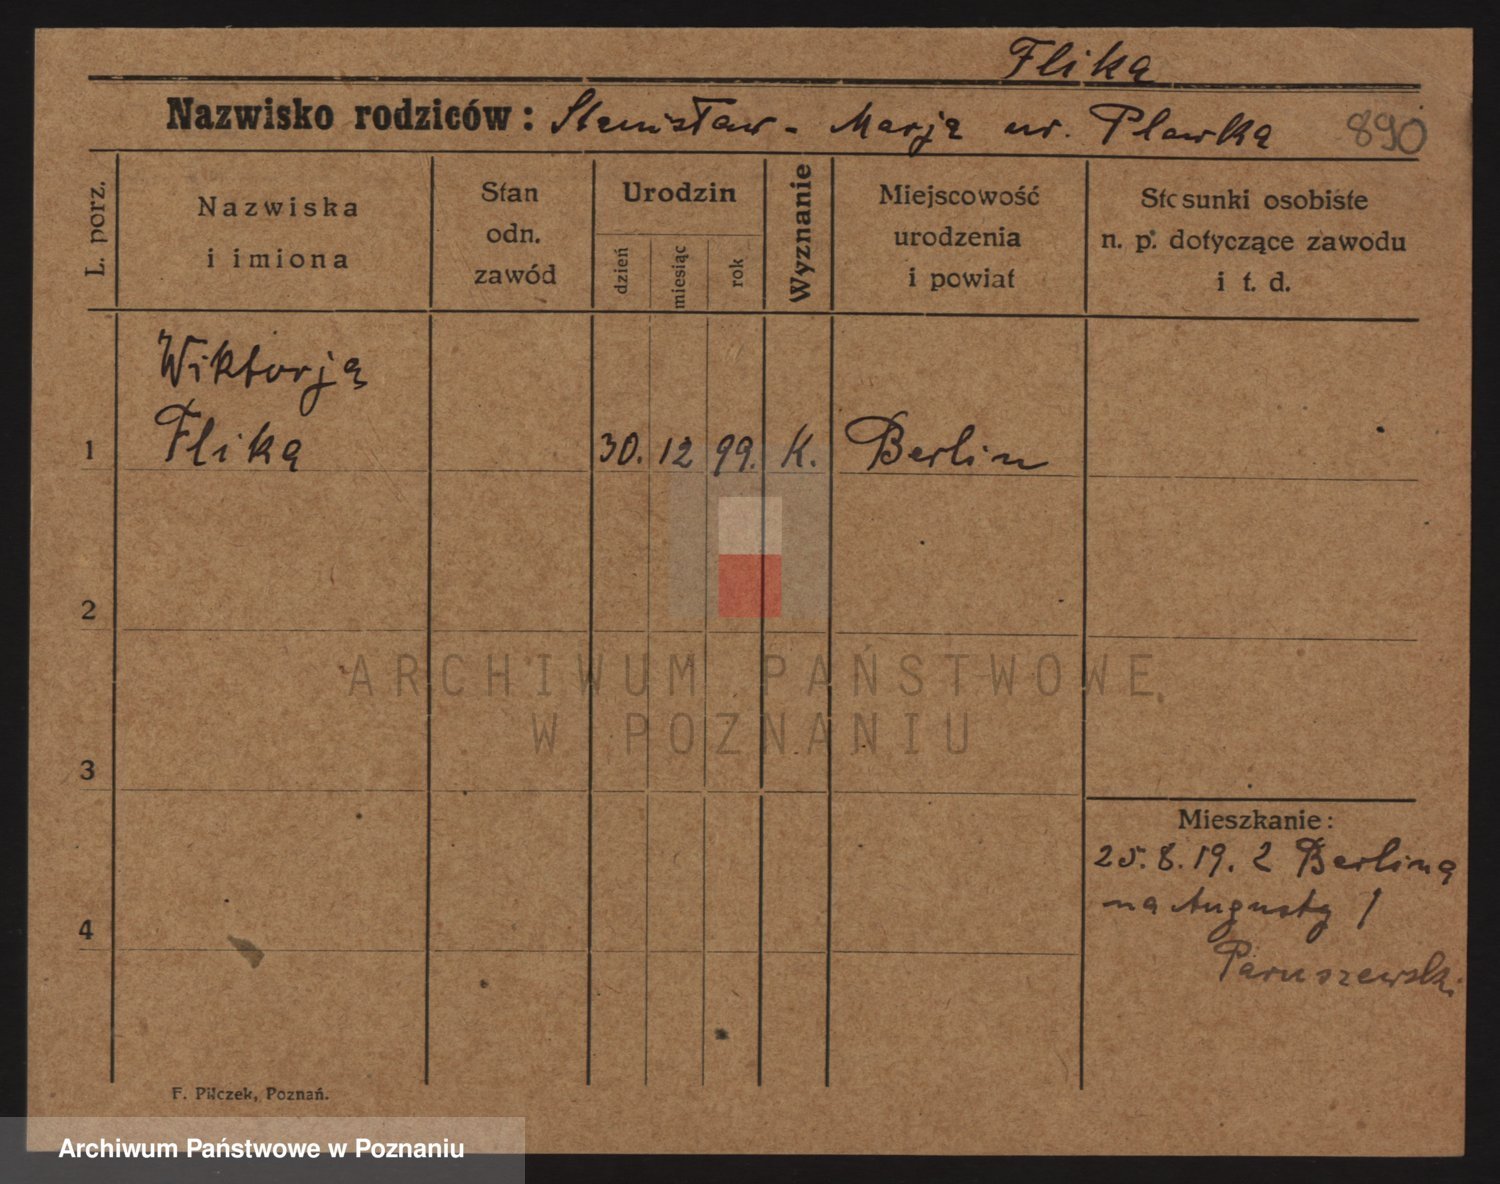 Flika
Nazwisko rodziców: Stanisław - Marja ur. Plawka 890
L. porz.
Nazwiska
i imiona
Stan
odn.
zawód
Urodzin
dzień
miesiąc
rok
Wyznanie
Miejscowość
urodzenia
i powiat
Stosunki osobiste
n. p. dotyczące zawodu
i t. d.
Wiktorja
1 Flika 30. 12 99. K. Berlin
2
3
4
Mieszkanie:
25.8.19. z Berlina
na Augusty 1
Paruszewski
F. Pilczek, Poznań.
ARCHIWUM PAŃSTWOWE
W POZNANIU
Archiwum Państwowe w Poznaniu